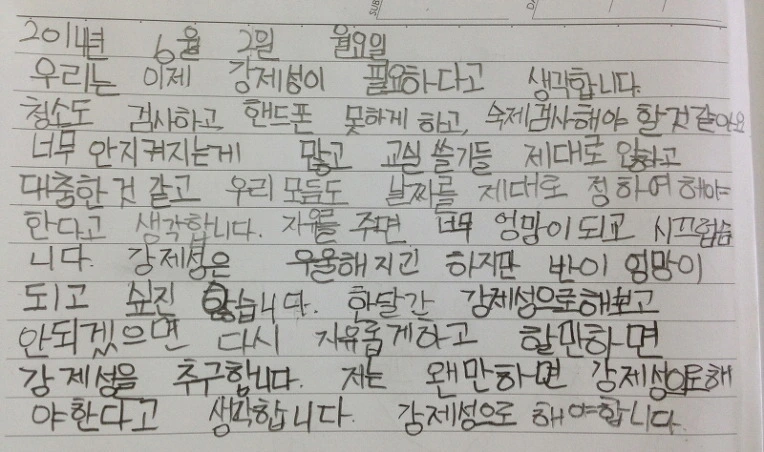 2014년 6월 2일 월요일
우리는 이제 강제성이 필요하다고 생각합니다.
청소도 검사하고 핸드폰 못하게 하고, 숙제검사해야 할것 같아요
너무 안지켜지는게 많고 교실 쓸기들 제대로 안하고
대충한것 같고 우리 모듬도 날짜를 제대로 정하여 해야
한다고 생각합니다. 자유를 주면 너무 엉망이되고 시끄럽습
니다. 강제성은 우울해지긴 하지만 반이 엉망이
되고 싶진 않습니다. 한달간 강제성으로해보고
안되겠으면 다시 자유롭게하고 할만하면
강제성을 추구합니다. 저는 왠만하면 강제성으로해
야한다고 생각합니다. 강제성으로 해야합니다.